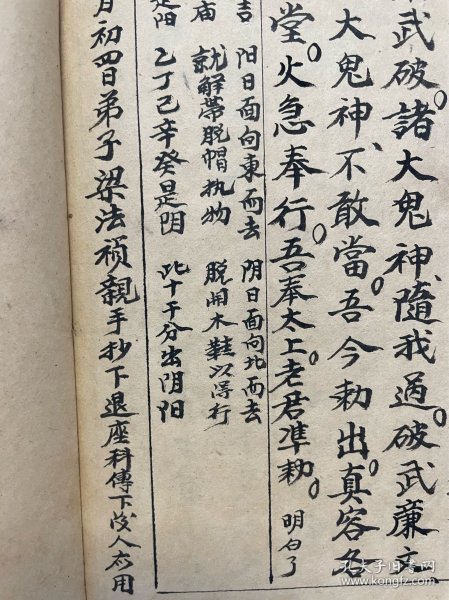 武破。諸大鬼神、隨我過。破武廉
大鬼神、不敢當。吾今勅出。真容
堂。火急奉行。吾奉太上。老君準勅。明白了
吉 阳日面向東而去 阴日面向北而去
庙 就解帶脱帽执物 脱開木鞋以淂行
是阳 乙丁己辛癸是阴 此十干分出阴阳
月初四日弟子梁法祯親手抄下退座科傳下後人应用
孔夫子旧书网
kongfz.com